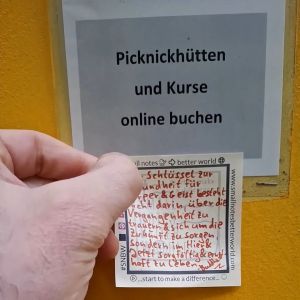 Picknickhütten
und Kurse
online buchen
notes
better world
Schlüssel zur
für
& Geist besteht
nicht darin, über die
Vergangenheit zu
trauern & sich um die
Zukunft zu sorgen
sondern im Hier &
Jetzt
zu Leben.
...start to make a difference...
#SNBW
www.smallnotesbetterworld.com